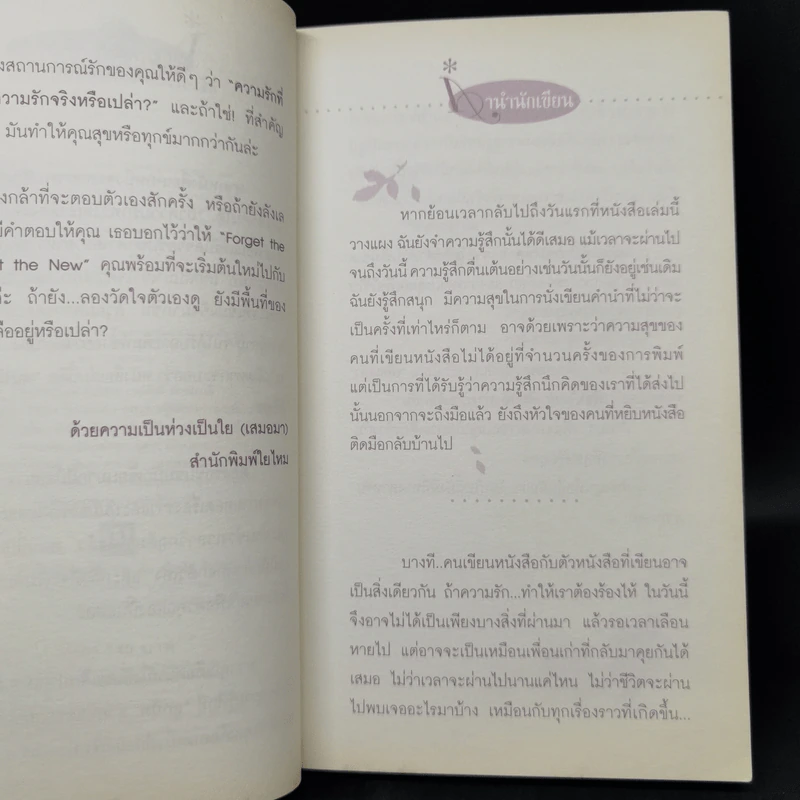 งสถานการณ์รักของคุณให้ดีๆ ว่า "ความรักที่
วามรักจริงหรือเปล่า?" และถ้าใช่! ที่สำคัญ
มันทำให้คุณสุขหรือทุกข์มากกว่ากันล่ะ
งกล้าที่จะตอบตัวเองสักครั้ง หรือถ้ายังลังเล
มีคำตอบให้คุณ เธอบอกไว้ว่าให้ "Forget the
t the New" คุณพร้อมที่จะเริ่มต้นใหม่ไปกับ
ถ้ายัง...ลองวัดใจตัวเองดู ยังมีพื้นที่ของ
ลืออยู่หรือเปล่า?
ด้วยความเป็นห่วงเป็นใย (เสมอมา)
สำนักพิมพ์ใยไหม
คำนำนักเขียน
หากย้อนเวลากลับไปถึงวันแรกที่หนังสือเล่มนี้
วางแผง ฉันยังจำความรู้สึกนั้นได้ดีเสมอ แม้เวลาจะผ่านไป
จนถึงวันนี้ ความรู้สึกตื่นเต้นอย่างเช่นวันนั้นก็ยังอยู่เช่นเดิม
ฉันยังรู้สึกสนุก มีความสุขในการนั่งเขียนคำนำที่ไม่ว่าจะ
เป็นครั้งที่เท่าไหร่ก็ตาม อาจด้วยเพราะว่าความสุขของ
คนที่เขียนหนังสือไม่ได้อยู่ที่จำนวนครั้งของการพิมพ์
แต่เป็นการที่ได้รับรู้ว่าความรู้สึกนึกคิดของเราที่ได้ส่งไป
นั้นนอกจากจะถึงมือแล้ว ยังถึงหัวใจของคนที่หยิบหนังสือ
ติดมือกลับบ้านไป
บางที..คนเขียนหนังสือกับตัวหนังสือที่เขียนอาจ
เป็นสิ่งเดียวกัน ถ้าความรัก...ทำให้เราต้องร้องไห้ ในวันนี้
จึงอาจไม่ได้เป็นเพียงบางสิ่งที่ผ่านมา แล้วรอเวลาเลือน
หายไป แต่อาจจะเป็นเหมือนเพื่อนเก่าที่กลับมาคุยกันได้
เสมอ ไม่ว่าเวลาจะผ่านไปนานแค่ไหน ไม่ว่าชีวิตจะผ่าน
ไปพบเจออะไรมาบ้าง เหมือนกับทุกเรื่องราวที่เกิดขึ้น...